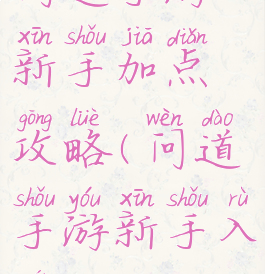 xīn shǒu jiā diǎn
新手加点
gōng lüè wèn dào
攻略(问道
shǒu yóu xīn shǒu rù
手游新手入